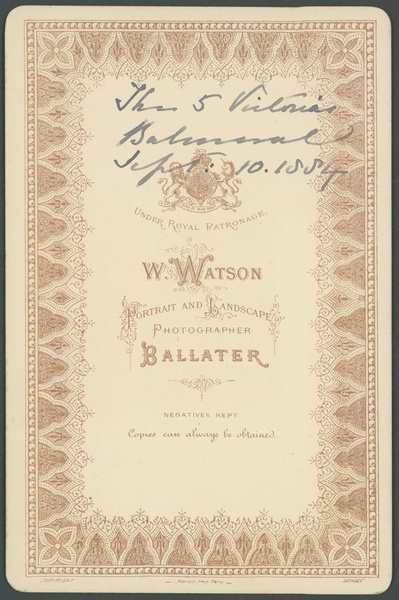 The 5 Victorias
Balmoral
Sept: 10. 1884
UNDER ROYAL PATRONAGE.
W. WATSON
PORTRAIT AND LANDSCAPE
PHOTOGRAPHER
BALLATER
NEGATIVES KEPT
Copies can always be obtained.
COPYRIGHT
DEPOSÉ